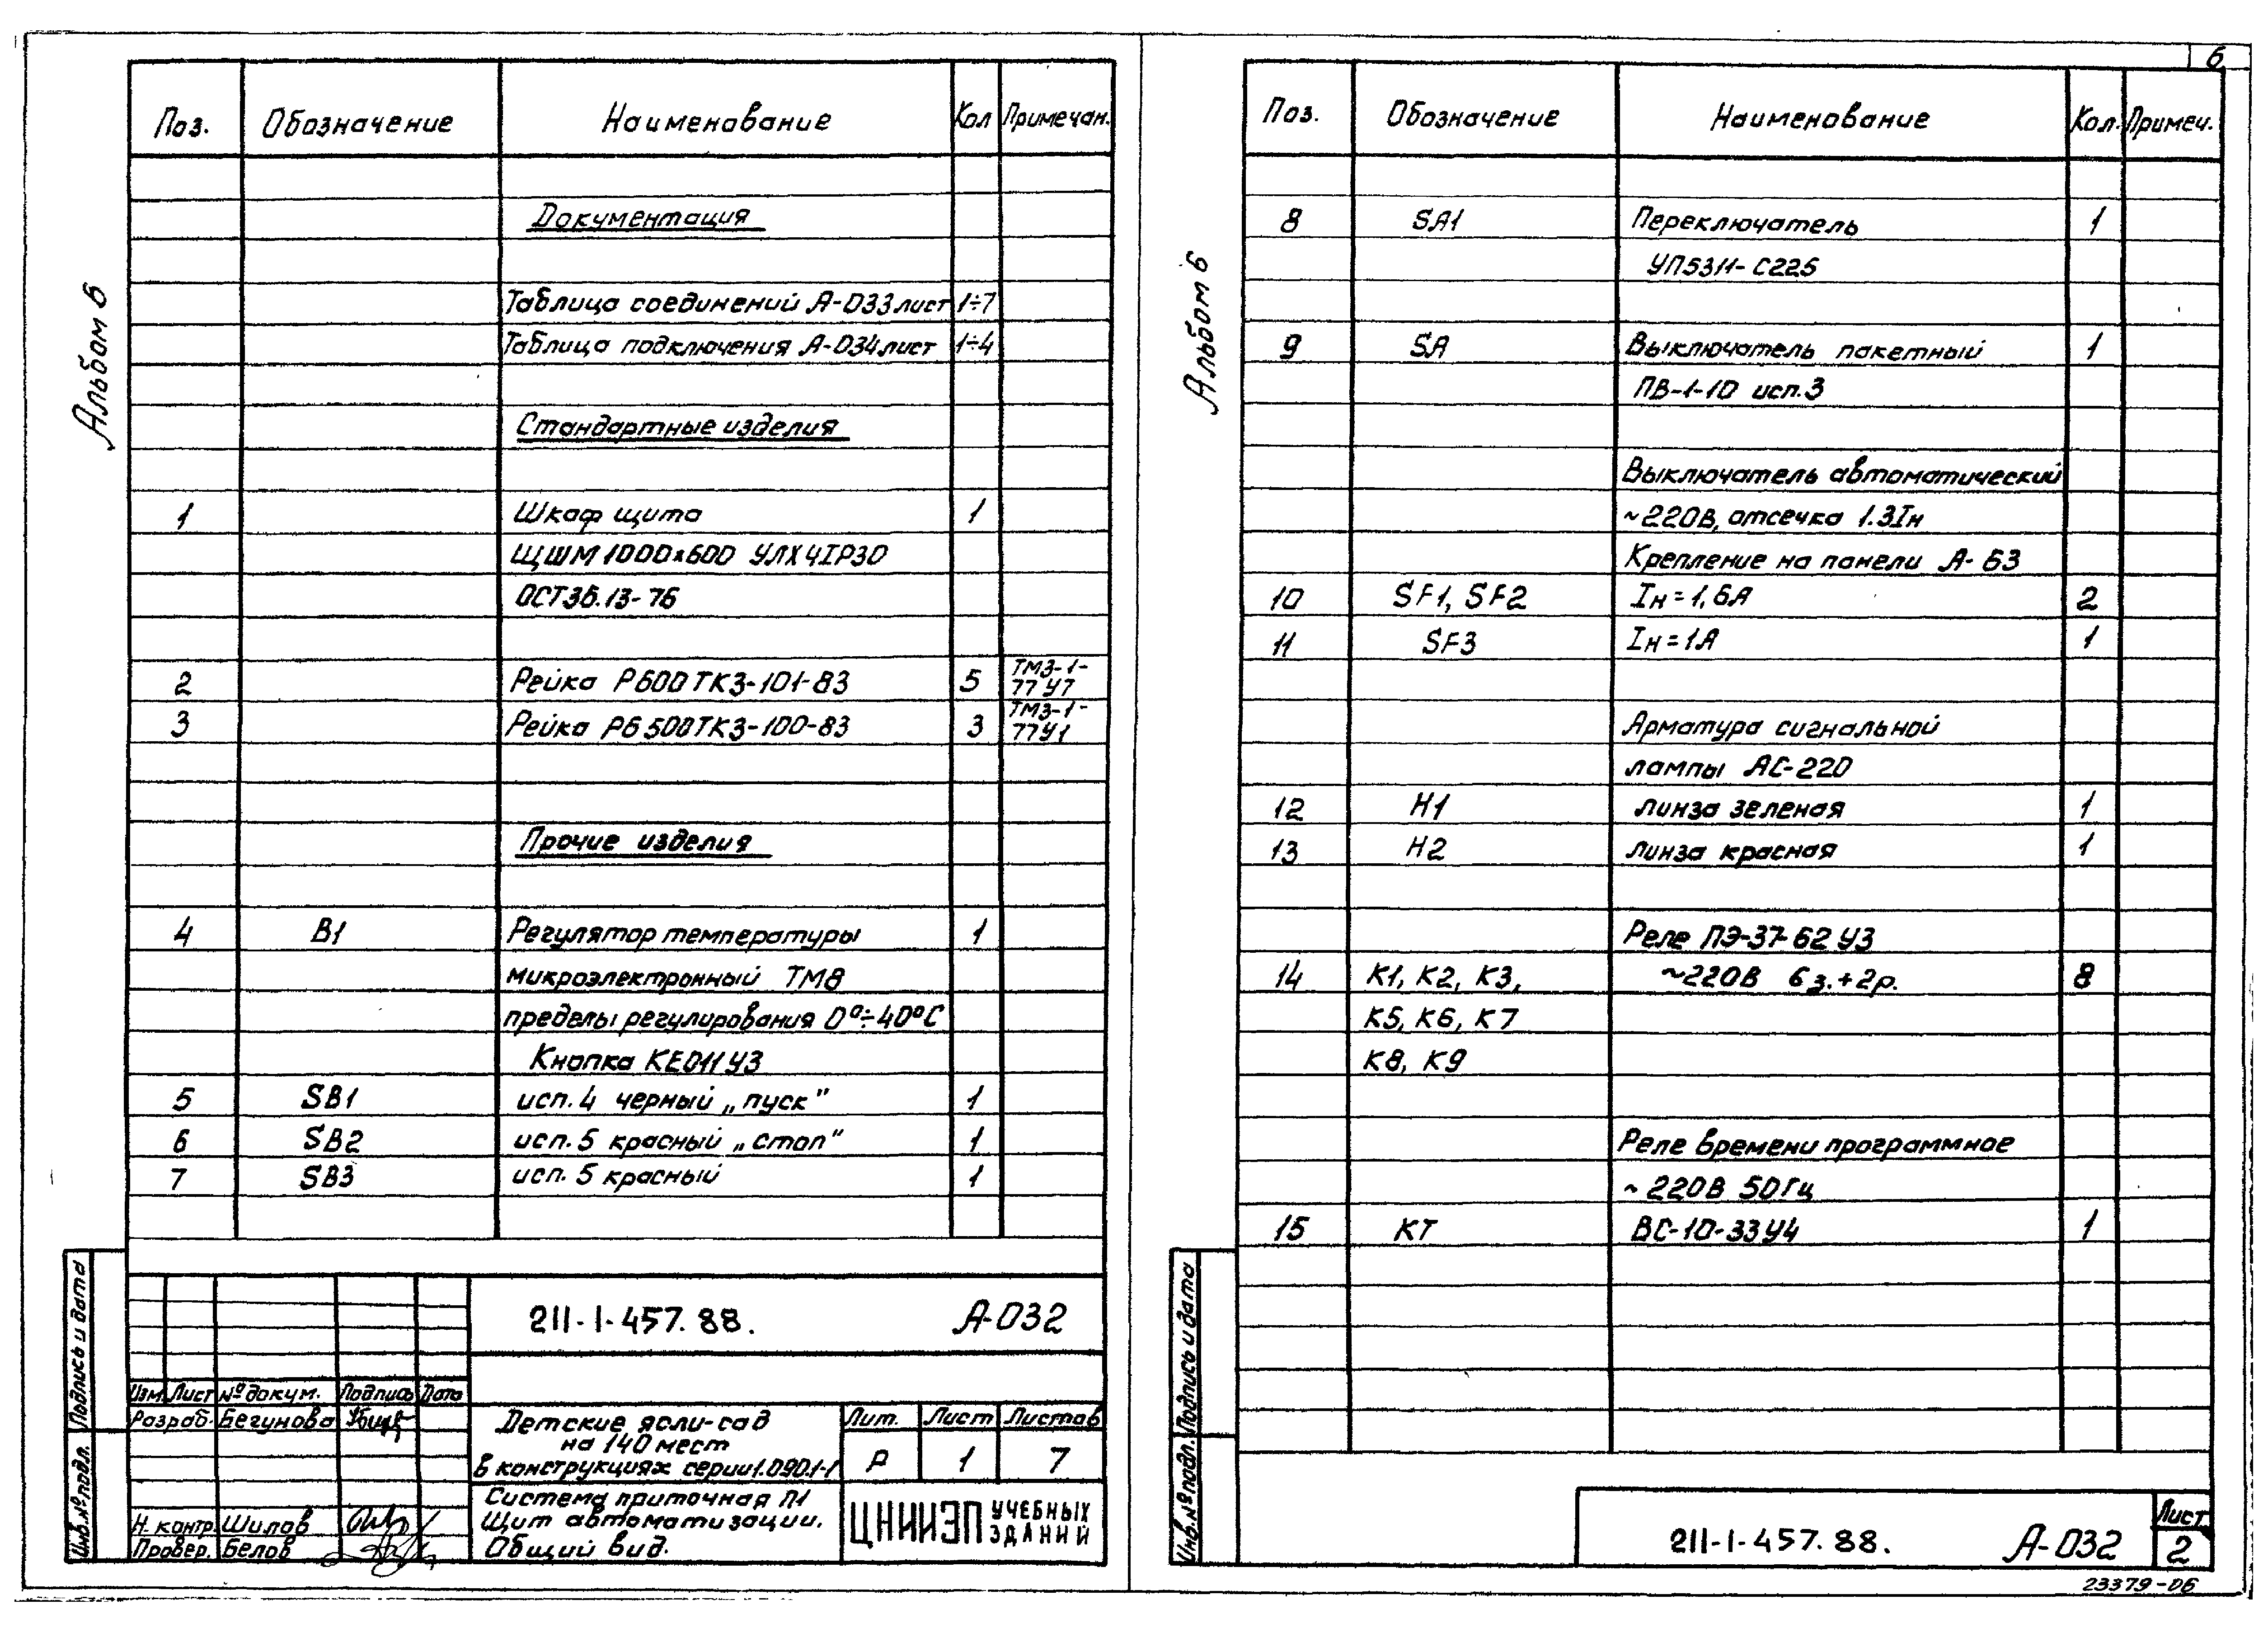 6
Альбом 6
Поз. Обозначение Наименование Кол Примечан.
Документация
Таблица соединений А-033 лист 1÷7
Таблица подключения А-034 лист 1÷4
Стандартные изделия
1 Шкаф щита 1
ЩШМ 1000х600 УЛХ4IP30
ОСТ36.13-76
2 Рейка Р600 ТК3-101-83 5 ТМ3-1-77У7
3 Рейка РБ500ТК3-100-83 3 ТМ3-1-77У1
Прочие изделия
4 В1 Регулятор температуры 1
микроэлектронный ТМ8
пределы регулирования 0°÷40°С
Кнопка КЕ011У3
5 SB1 исп. 4 черный „пуск" 1
6 SB2 исп. 5 красный „стоп" 1
7 SB3 исп. 5 красный 1
Подпись и дата
Инв.№ подл.
211-1-457.88. А-032
Изм. Лист № докум. Подпись Дата
Разраб. Бегунова
Н. контр. Шилов
Провер. Белов
Детские ясли-сад
на 140 мест
в конструкциях серии 1.090.1-1
Лит. Лист Листов
Р 1 7
Система приточная П1
Щит автоматизации.
Общий вид.
ЦНИИЭП УЧЕБНЫХ ЗДАНИЙ
Альбом 6
Поз. Обозначение Наименование Кол. Примеч.
8 SA1 Переключатель 1
УП5311-С225
9 SA Выключатель пакетный 1
ПВ-1-10 исп.3
Выключатель автоматический
~220В, отсечка 1.3Iн
Крепление на панели А-63
10 SF1, SF2 Iн=1,6А 2
11 SF3 Iн=1А 1
Арматура сигнальной
лампы АС-220
12 Н1 линза зеленая 1
13 Н2 линза красная 1
Реле ПЭ-37-62 У3
14 К1, К2, К3, ~220В 6з.+2р. 8
К5, К6, К7
К8, К9
Реле времени программное
~220В 50Гц
15 КТ ВС-10-33У4 1
Подпись и дата
Инв.№ подл.
211-1-457.88. А-032
Лист
2
23379-06